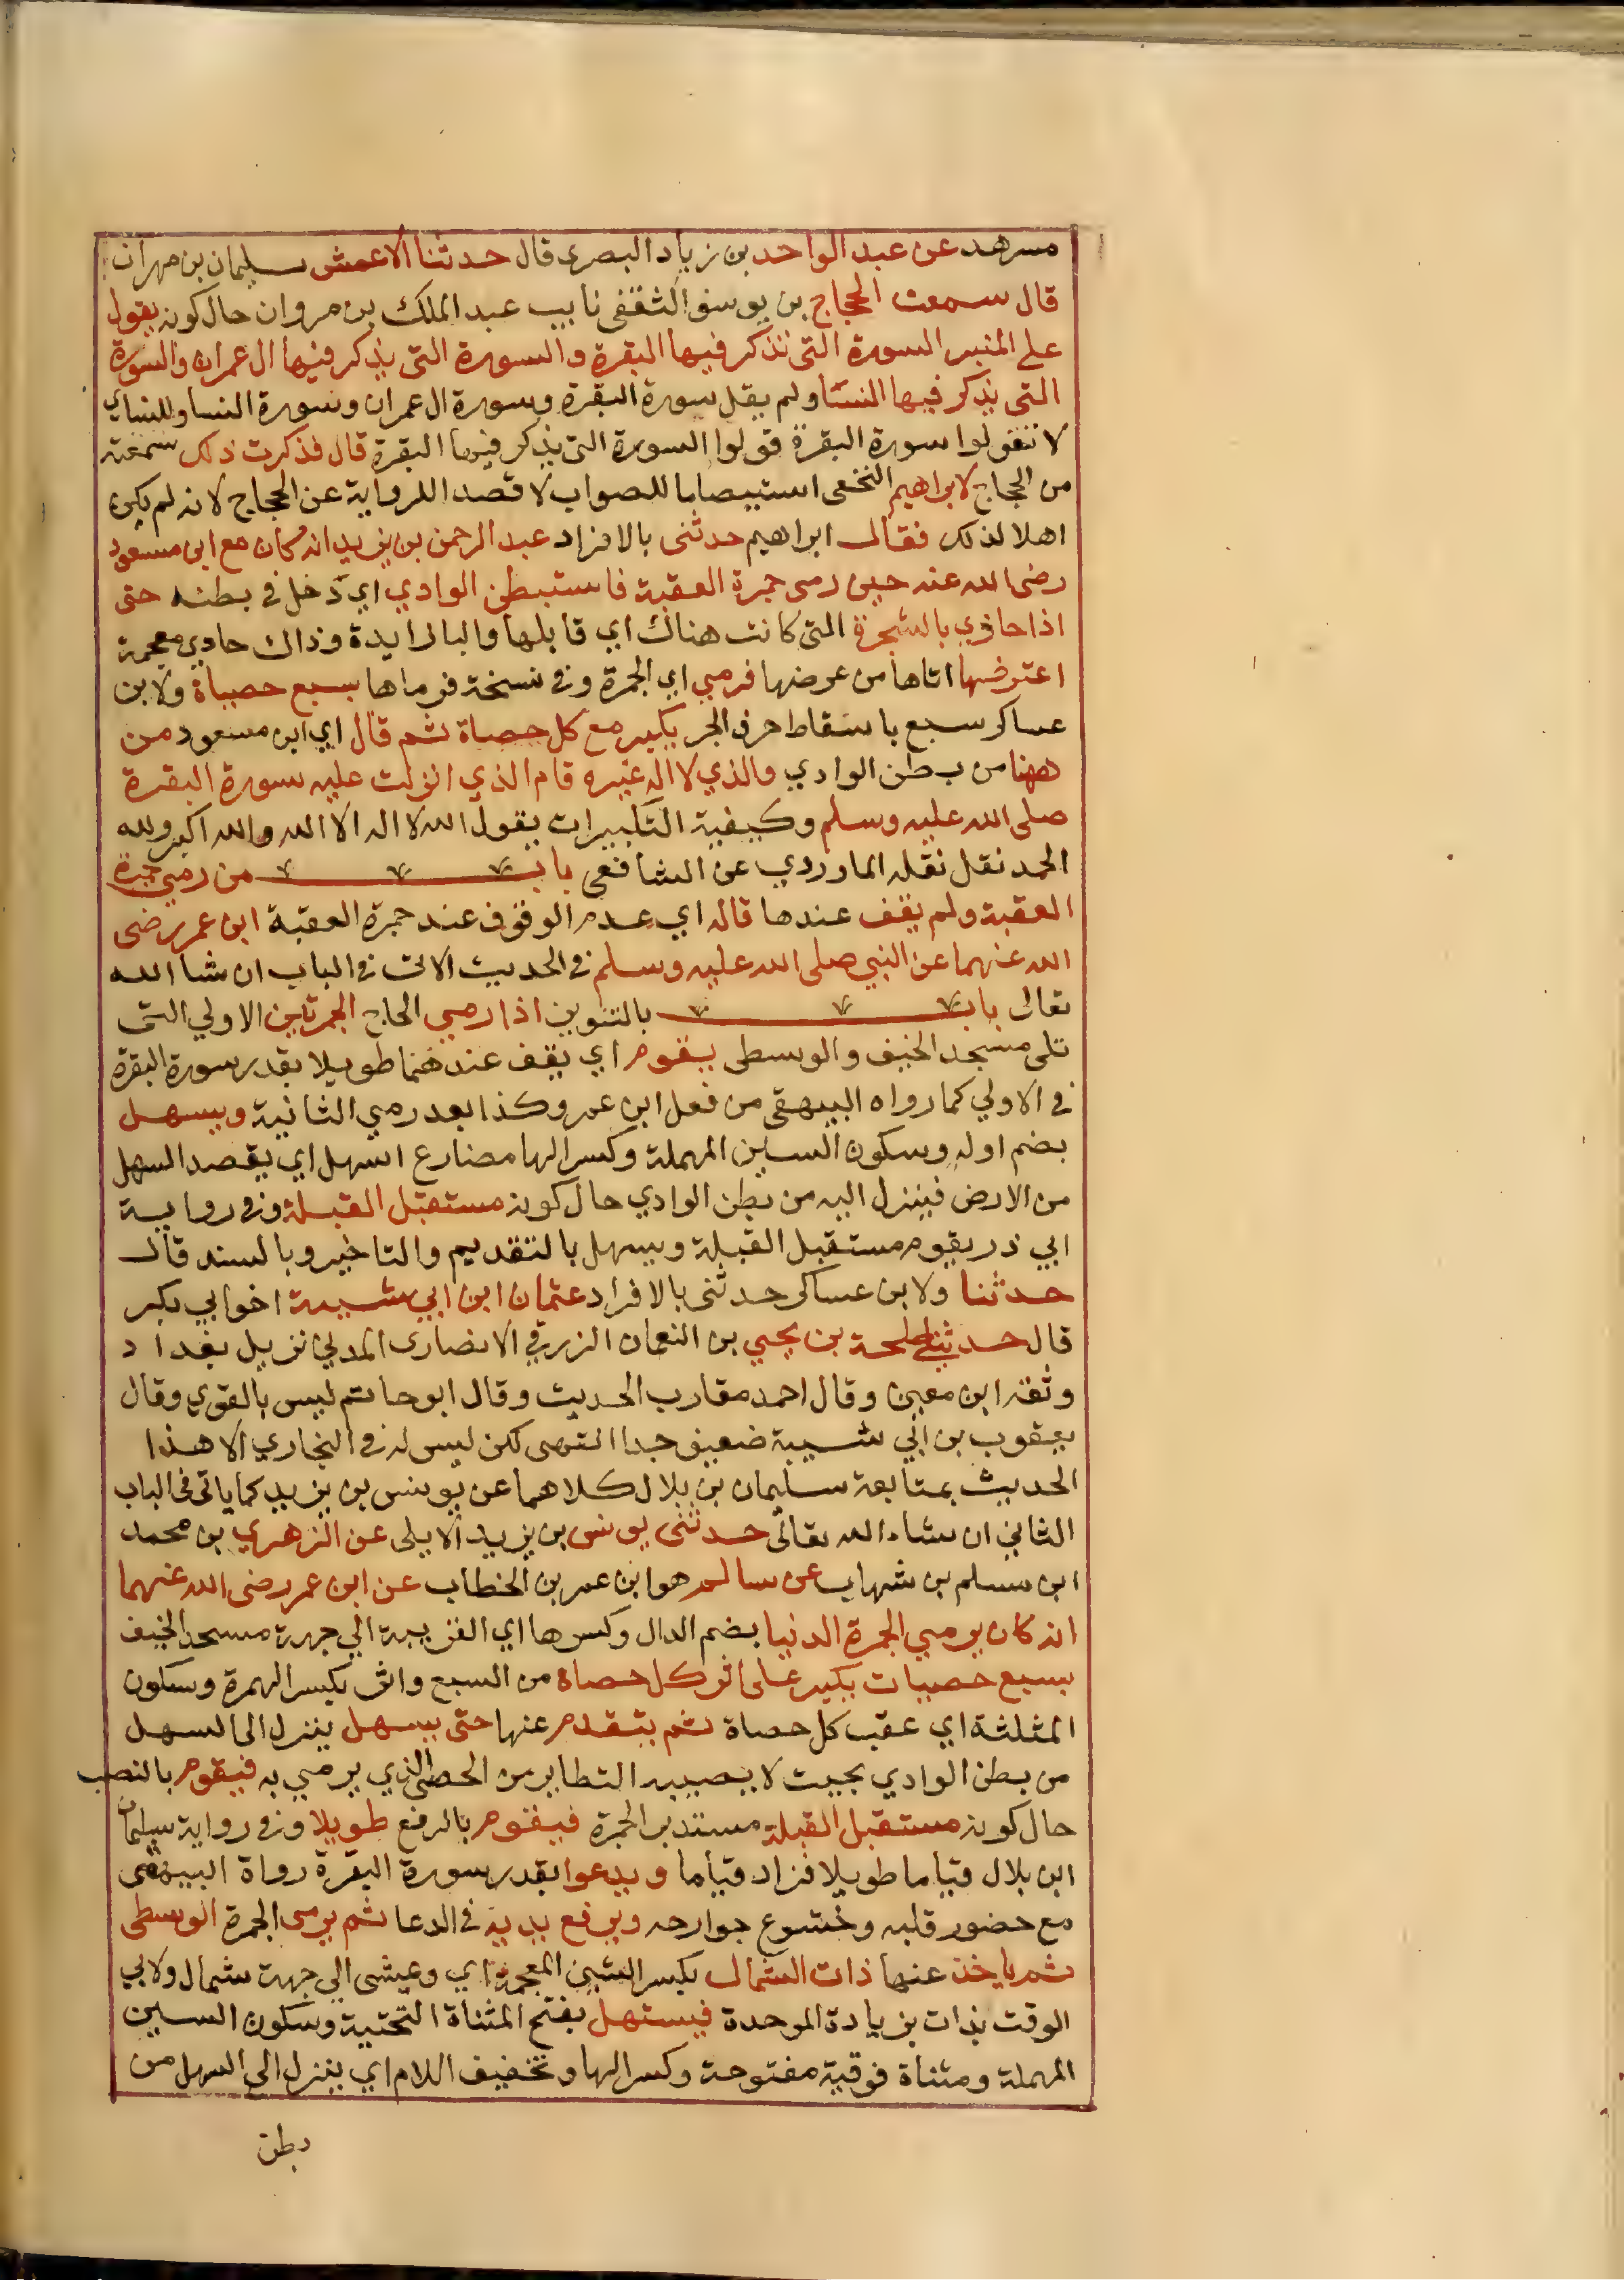 مسرهد عن عبد الواحد بن زياد البصرى قال حدثنا الاعمش سليمان بن مهران
قال سمعت الحجاج بن يوسف الثقفى نايب عبد الملك بن مروان حال كونه يقول
على المنبر السورة التى تذكر فيها البقرة والسورة التى يذكر فيها ال عمران والسورة
التى يذكر فيها النسا ولم يقل سورة البقرة وسورة ال عمران وسورة النسا وللنساي
لا تقولوا سورة البقرة قولوا السورة التى يذكر فيها البقرة قال فذكرت ذلك سمعته
من الحجاج لابراهيم النخعى استيصابا للصواب لا قصدا للرواية عن الحجاج لانه لم يكن
اهلا لذلك فقال ابراهيم حدثنى بالافراد عبد الرحمن بن يزيد انه كان مع ابن مسعود
رضى الله عنه حين رمى جمرة العقبة فاستبطن الوادي اي دخل في بطنه حتى
اذا حاذي بالشجرة التى كانت هناك اي قابلها والبا زايدة وذاك حاذي معجمة
اعترضها اتاها من عرضها فرمي اي الجمرة وفي نسخة فرماها بسبع حصياة ولابن
عساكر سبع باسقاط حرف الجر يكبر مع كل حصاة ثم قال اي ابن مسعود من
ههنا من بطن الوادي والذي لا اله غيره قام الذي انزلت عليه سورة البقرة
صلى الله عليه وسلم وكيفية التكبيرات يقول الله لا اله الا الله والله اكبر ولله
الحمد نقل نقله الماوردي عن الشافعى باب من رمي جمرة
العقبة ولم يقف عندها قاله اي عدم الوقوف عند جمرة العقبة ابن عمر رضى
الله عنهما عن النبي صلى الله عليه وسلم في الحديث الاتى في الباب ان شا الله
تعالى باب بالتنوين اذا رمي الحاج الجمرتين الاولي التى
تلى مسجد الخيف والوسطى يقوم اي يقف عندهما طويلا بقدر سورة البقرة
في الاولي كما رواه البيهقى من فعل ابن عمر وكذا بعد رمي الثانية ويسهل
بضم اوله وسكون السين المهملة وكسر الها مضارع اسهل اي يقصد السهل
من الارض فينزل اليه من بطن الوادي حال كونه مستقبل القبلة وفي رواية
ابي ذر يقوم مستقبل القبلة ويسهل بالتقديم والتاخير وبالسند قال
حدثنا ولابن عساكر حدثنى بالافراد عثمان ابن ابي شيبة اخو ابي بكر
قال حدثنا طلحة بن يحيي بن النعمان الزرقي الانصارى المدني نزيل بغداد
وثقه ابن معين وقال احمد مقارب الحديث وقال ابو حاتم ليس بالقوي وقال
يعقوب بن ابي شيبة ضعيف جدا انتهى لكن ليس له في البخاري الا هذا
الحديث بمتابعة سليمان بن بلال كلاهما عن يونس بن يزيد كما ياتى في الباب
الثاني ان شاء الله تعالى حدثنى يونس بن يزيد الايلى عن الزهري بن محمد
ابن مسلم بن شهاب عن سالم هو ابن عمر بن الخطاب عن ابن عمر رضى الله عنهما
انه كان يرمي الجمرة الدنيا بضم الدال وكسرها اي القريبة الي جهة مسجد الخيف
بسبع حصيات يكبر على اثر كل حصاة من السبع واثر بكسر الهمزة وسكون
المثلثة اي عقب كل حصاة ثم يتقدم عنها حتى يسهل ينزل الى السهل
من بطن الوادي بحيث لا يصيبه التطاير من الحصى الذي يرمي به فيقوم بالنصب
حال كونه مستقبل القبلة مستدبر الجمرة فيقوم بالرفع طويلا وفي رواية سليمان
ابن بلال قياما طويلا فزاد قياما ويدعوا بقدر سورة البقرة رواة البيهقى
مع حضور قلبه وخشوع جوارحه ويرفع يديه في الدعا ثم يرمى الجمرة الوسطى
ثم ياخذ عنها ذات الشمال بكسر الشين المعجمة اي ويمشى الي جهة شمال ولابي
الوقت بذات بزيادة الموحدة فيستهل بفتح المثناة التحتية وسكون السين
المهملة ومثناة فوقية مفتوحة وكسر الها وتخفيف اللام اي ينزل الى السهل من
بطن